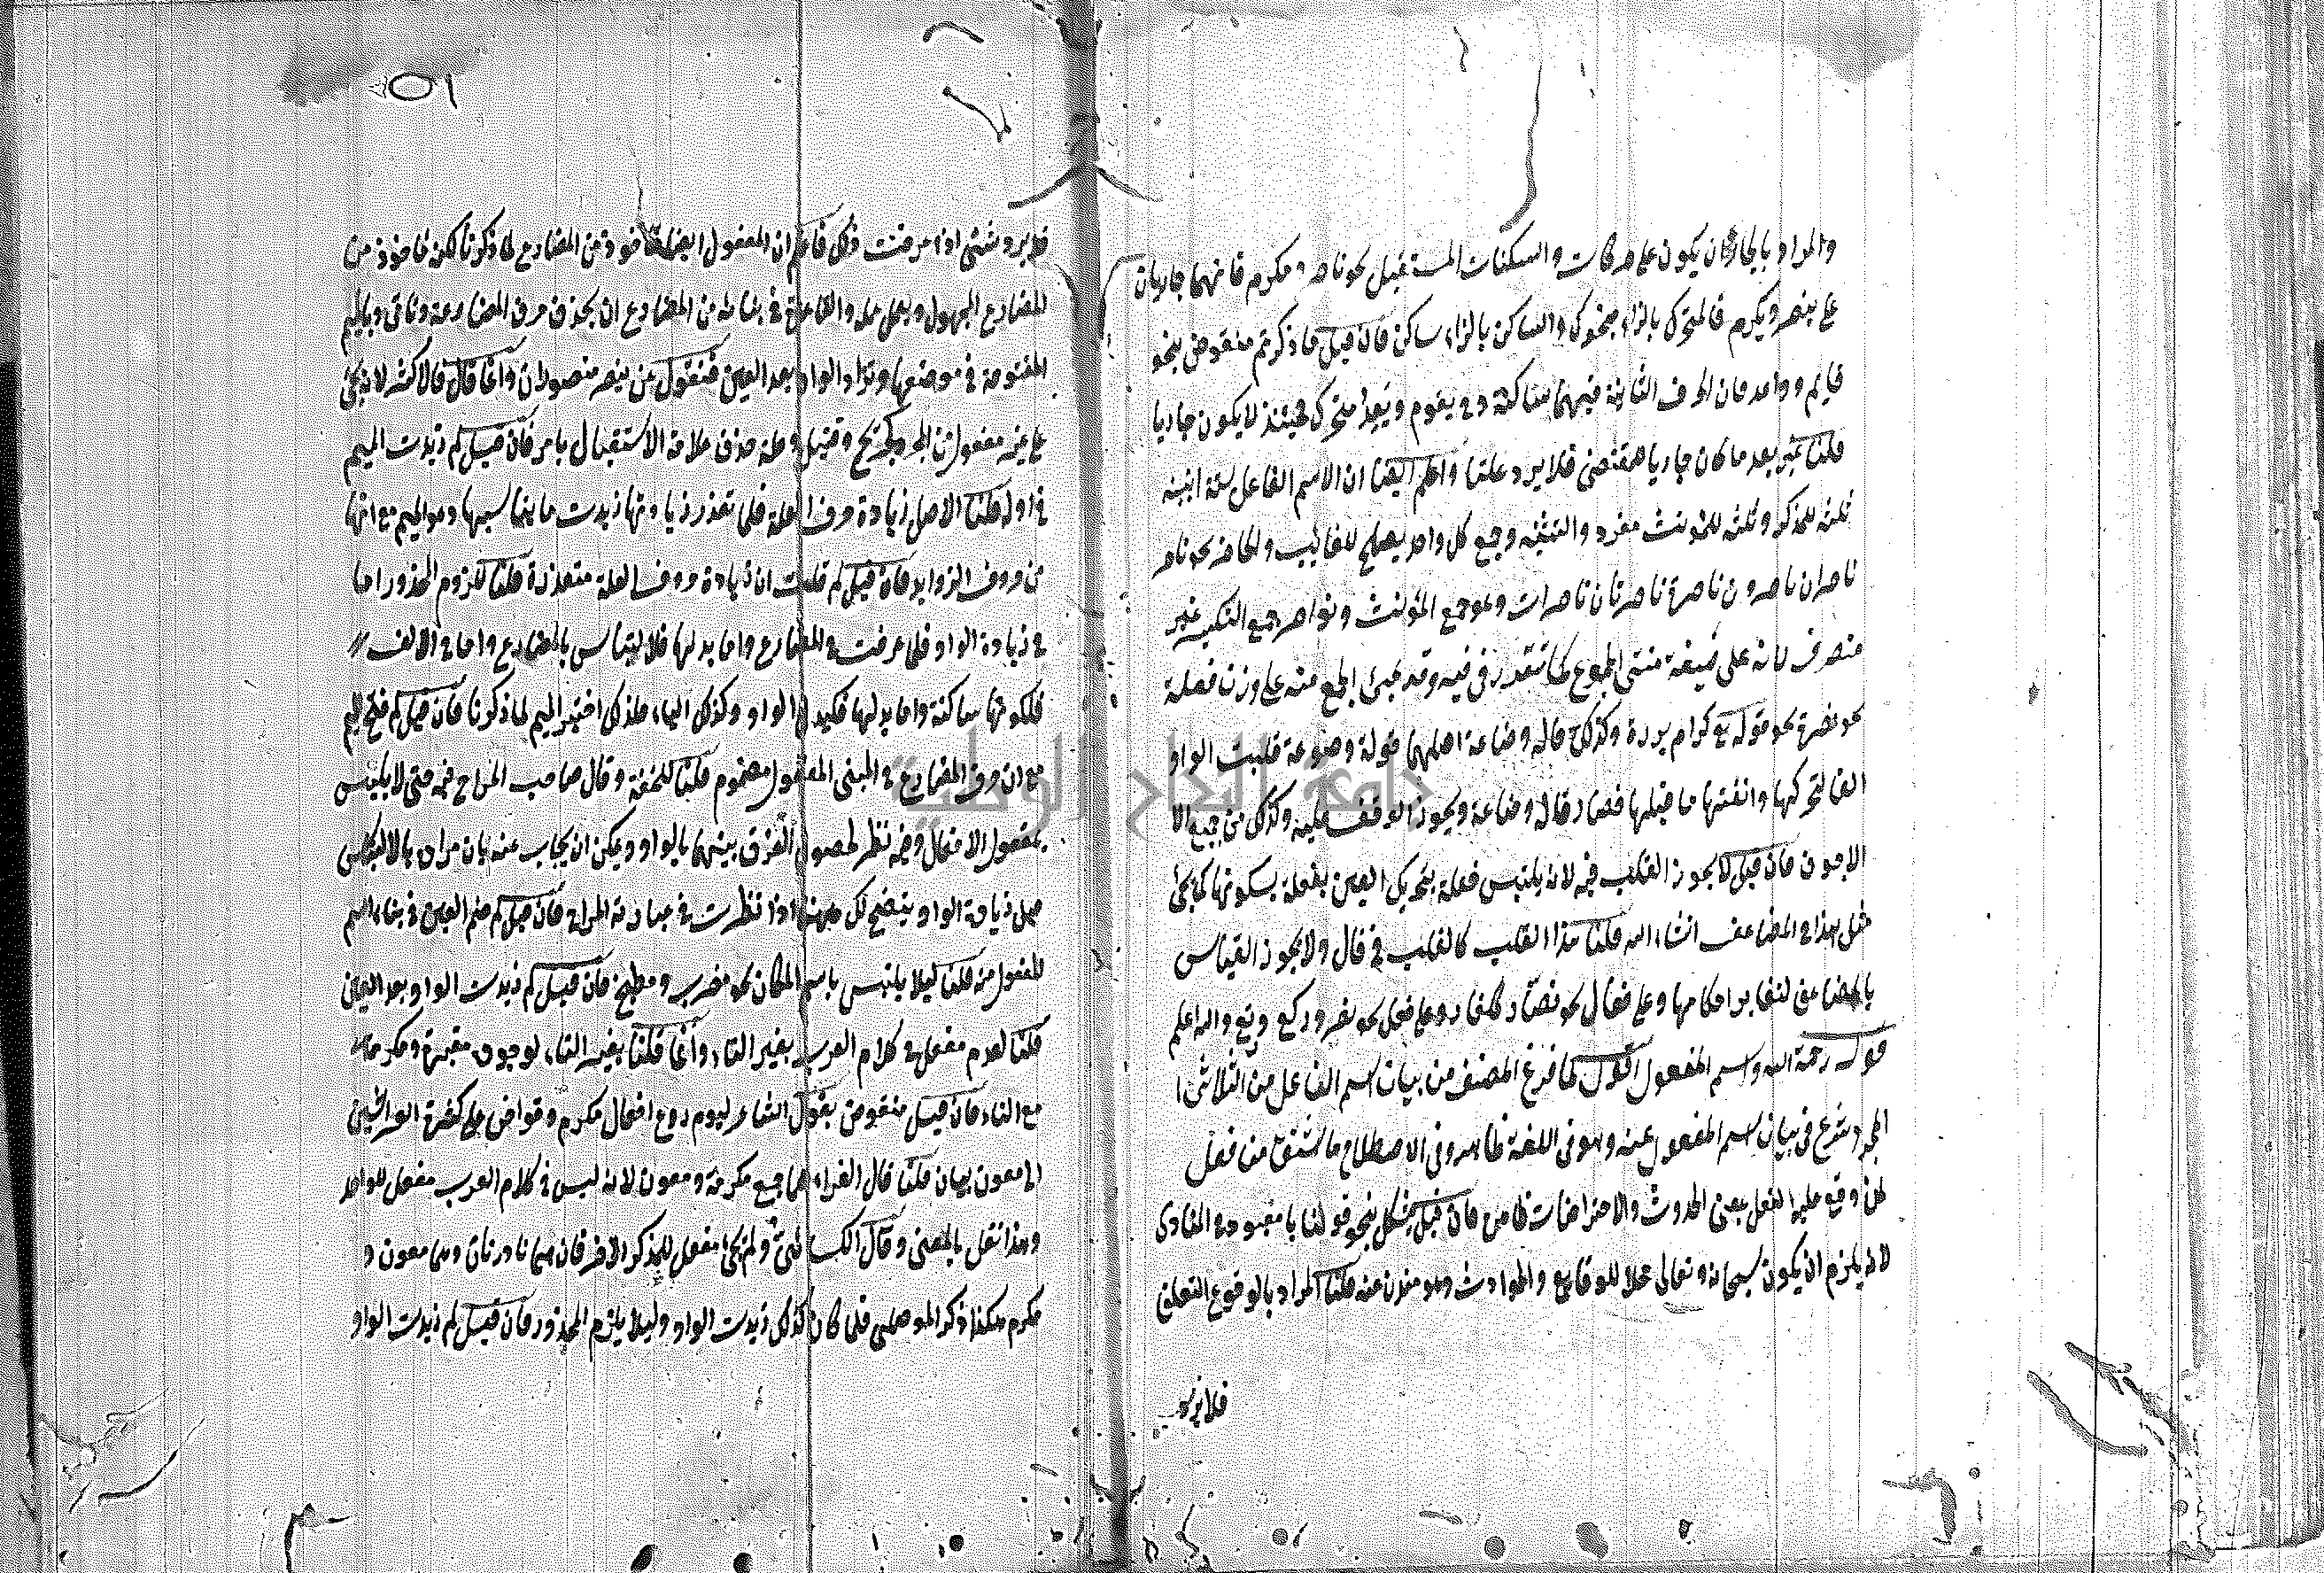 والمراد بالجاري ان يكون على حركات والسكنات المستقبل نحو ناصر ومكرم فانهما جاريان
على ينصر ويكرم فالمتحرك بازاء متحرك والساكن بازاء ساكن فان قيل ما ذكرتم منقوض بنحو
قايم وواحد فان الحرف الثانية فيهما ساكنة وفي يقوم ويعد متحرك فحينئذ لا يكون جاريا
قلنا غير بعد ما كان جاريا فلا يرد علينا واعلم ايضا ان الاسم الفاعل ستة ابنية
ثلثة للمذكر وثلثة للمؤنث مفرد والتثنية وجمع كل واحد يصلح للغائب والحاضر نحو ناصر
ناصران ناصرون ناصرة ناصرتان ناصرات وهو جمع المؤنث ونواصر جمع التكسير غير
منصرف لانه على صيغة منتهى الجموع كما ستعرف فيه وقد يجئ الجمع منه على وزن فعلة
نحو نصرة نحو قوله تع كرام بررة وكذلك قالة وصاعة اصلهما قولة وصوعة قلبت الواو
الفا لتحركها وانفتاح ما قبلها فصار قالة وصاعة ويجوز الوقف عليه وكذلك من جميع الا
الاجوف فان قيل لا يجوز القلب فيه لانه يلتبس فعلة بتحريك العين بفعلة بسكونها كما يجئ
مثل هذا في المضاعف انشاء الله قلنا هذا القلب كالقلب في قال ولا يجوز القياس
بالمضاعف لتغاير احكامها وعلى فعال نحو نصار وكفار وعلى فعل نحو نصر وركع والله اعلم
قوله رحمة الله واسم المفعول اقول لما فرغ المصنف من بيان اسم الفاعل من الثلاثى ا
المجرد شرع في بيان اسم المفعول عنه وهو في اللغة ظاهر وفي الاصطلاح ما اشتق من فعل
لمن وقع عليه الفعل بمعنى الحدوث والاحترازات ظاهر فان قيل يشكل بنحو قولنا يا معبود في المنادى
لانه يلزم ان يكون سبحانه وتعالى محلا للوقايع والحوادث وهو منزه عنه قلنا المراد بالوقوع التعلق
فلا يرد
١٥
فلا يرد شئ اذا عرفت ذلك فاعلم ان المفعول ايضا مأخوذ من المضارع لما ذكرنا لكنه مأخوذ من
المضارع المجهول ويعمل عمله والقاعدة في بنائه من المضارع ان يحذف حرف المضارعة وتاتي بالميم
المفتوحة في موضعها وتزاد الواو بعد العين فتقول من ينصر منصور وانما قال فالاكثر لانه يجئ
على غير مفعول من المجرد كجريح وقتيل وعلة حذف علامة الاستقبال ما مر فان قيل لم زيدت الميم
في اوله قلنا الاصل زيادة حرف العلة فلما تعذر زيادتها زيدت ما يناسبها وهو الميم مع انها
من حروف الزوايد فان قيل لم قلت ان زيادة حروف العلة متعذرة قلنا للزوم المحذور اما
في زيادة الواو فلما عرفت في المضارع واما بدلها فلالتباس بالمضارع واما في الالف
فلكونها ساكنة واما بدلها فكبدل الواو وكذلك الياء فلذلك اختير الميم لما ذكرنا فان قيل لم فتح الميم
مع ان حرف المضارع في المبنى المفعول مضموم قلنا للخفة وقال صاحب المراح فتحت حتى لا يلتبس
بمفعول الافعال وفيه نظر لحصول الفرق بينهما بالواو ويمكن ان يجاب عنه بان مراده بالالتباس
قبل زيادة الواو يتضح لك ههنا اذا نظرت في عبارة المراح فان قيل لم ضم العين في بناء اسم
المفعول منه قلنا ليلا يلتبس باسم المكان نحو مضرب ومطبخ فان قيل لم زيدت الواو بعد العين
قلنا لعدم مفعل في كلام العرب بغير التاء وانما قلنا بغير التاء لوجود مقبرة ومكرمة
مع التاء فان قيل منقوض بقول الشاعر ليوم روع او فعال مكرم وقوله على كثرة الواشين
اي معون بيان قلنا قال الفراء هما جمع مكرمة ومعونة لانه ليس في كلام العرب مفعل للواحد
وهذا نقل بالمعنى وقال الكسائي ولم يجئ مفعل للمذكر الا حرفان هما نادرتان وهما معون و
مكرم هكذا ذكر الموصلى فلما كان كذلك زيدت الواو وليلا يلزم المحذور فان قيل لم زيدت الواو
جامعة النجاح الوطنية